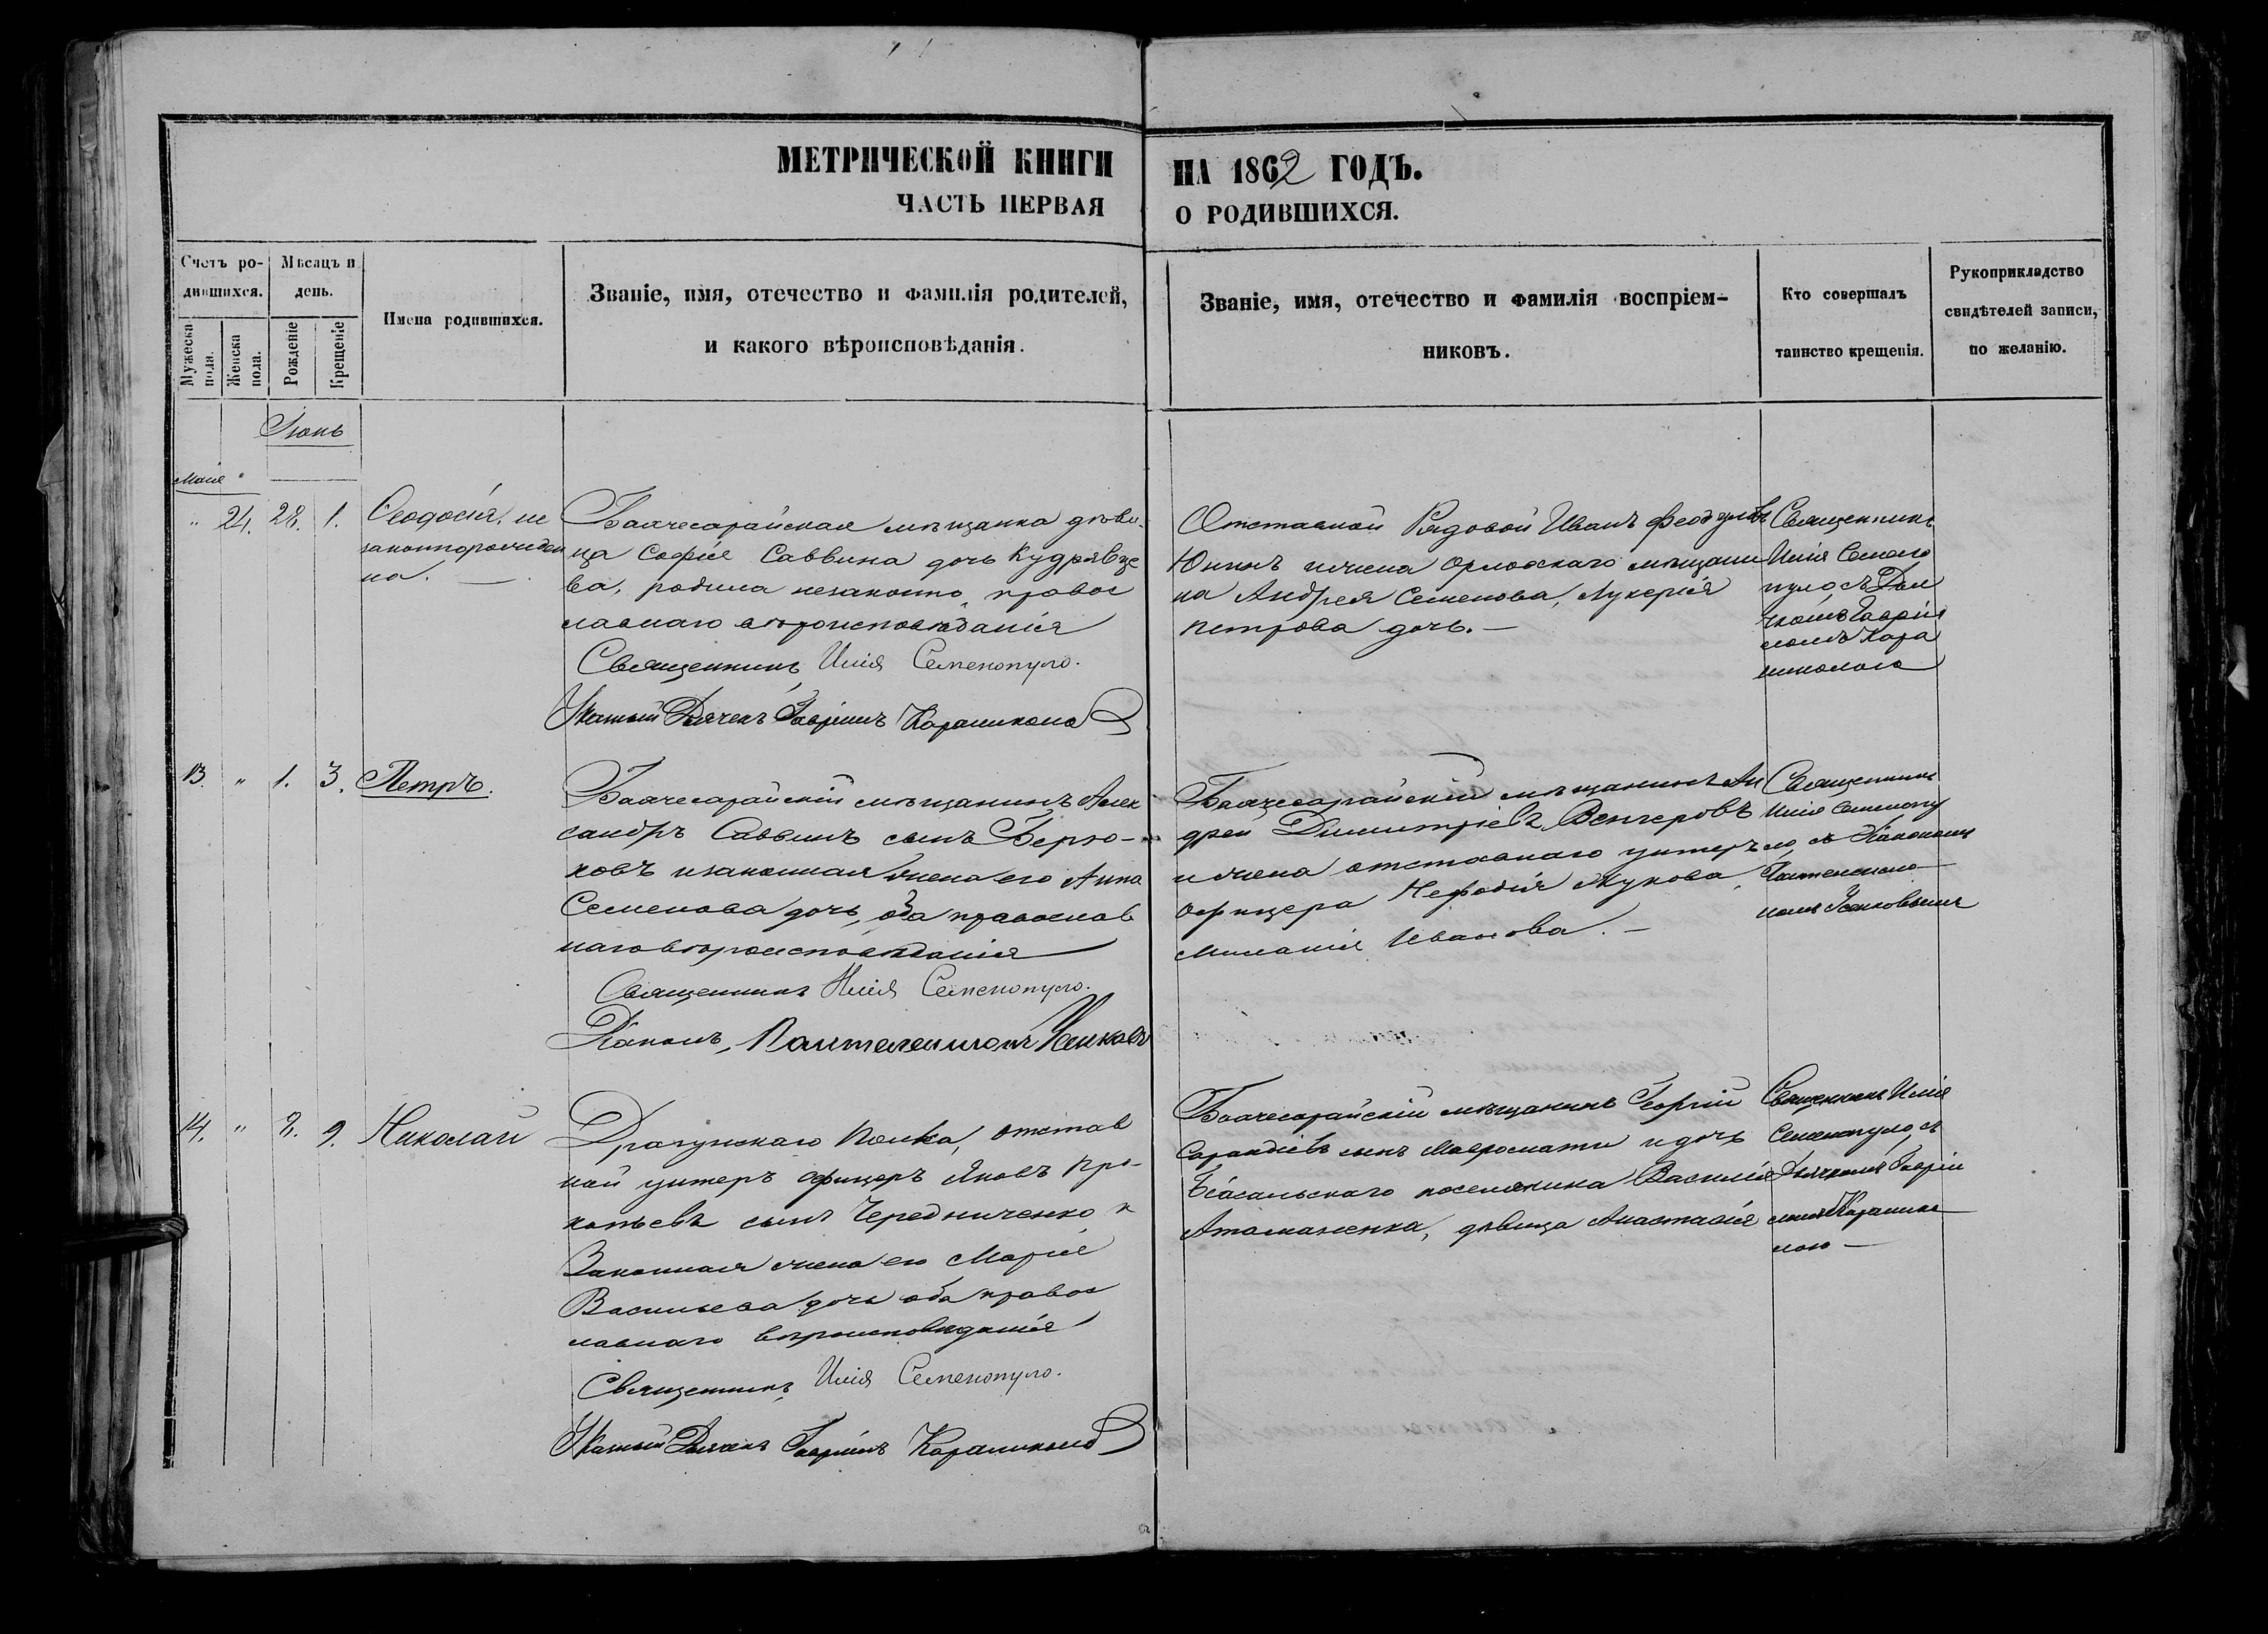 МЕТРИЧЕСКОЙ КНИГИ НА 1862 ГОДЪ.
ЧАСТЬ ПЕРВАЯ О РОДИВШИХСЯ.
Счетъ ро-
дившихся.
Мѣсяцъ и
день.
Мужеска
пола.
Женска
пола.
Рожденіе
Крещеніе
Имена родившихся.
Званіе, имя, отечество и фамилія родителей,
и какого вѣроисповѣданія.
Званіе, имя, отечество и фамилія воспріем-
никовъ.
Кто совершалъ
таинство крещенія.
Рукоприкладство
свидѣтелей записи,
по желанію.
Іюнь
Маія
" 24. 28. 1.
Ѳеодосія, не
законнорожден
на.
Бахчесарайская мѣщанка дѣви-
ца Софія Саввина дочь Кудрявце
ва, родила незаконно, правос
лавнаго вѣроисповѣданія
Священникъ Илія Семенопуло.
Дьячекъ Гавріилъ Караникола
Отставной Рядовой Иванъ
Юнинъ и жена Орловскаго мѣщани
на Андрея Семенова, Лукерія
Петрова дочь.
Священникъ
Илія Семено
пуло, съ Дья
чкомъ Гаврі
ломъ Кара
николою
13. " 1. 3. Петръ.
Бахчесарайскій мѣщанинъ Алек
сандръ Саввинъ сынъ Берю-
ковъ и законная жена его Анна
Семенова дочь, оба православ
наго вѣроисповѣданія
Священникъ Илія Семенопуло.
Діаконъ, Пантелеимонъ
Бахчесарайскій мѣщанинъ Ан
дрей Димитріевъ Венгеровъ
и жена отставнаго унтеръ
офицера Мефодія Жукова,
Миланія Иванова.
Священникъ
Илія Семенопу
ло, съ Діакономъ
Пантелеимо
номъ
14. " 8. 9. Николай
Драгунскаго Полка, отстав
ной унтеръ офицеръ Яковъ Про-
копьевъ сынъ Чередниченко и
Законная жена его Марія
Васильева дочь оба правос
лавнаго вѣроисповѣданія
Священникъ Илія Семенопуло.
Дьячекъ Гавріилъ Караникола
Бахчесарайскій мѣщанинъ Георгій
Сарандіевъ сынъ Мавромати и дочь
Біасальскаго поселянина Василія
Атаманенка, дѣвица Анастасія
Священникъ Илія
Семенопуло, съ
Дьячкомъ Гаврі
ломъ Караника
лою